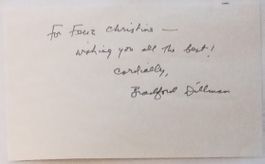 For Christine —
wishing you all the best!
Cordially,
Bradford Dillman